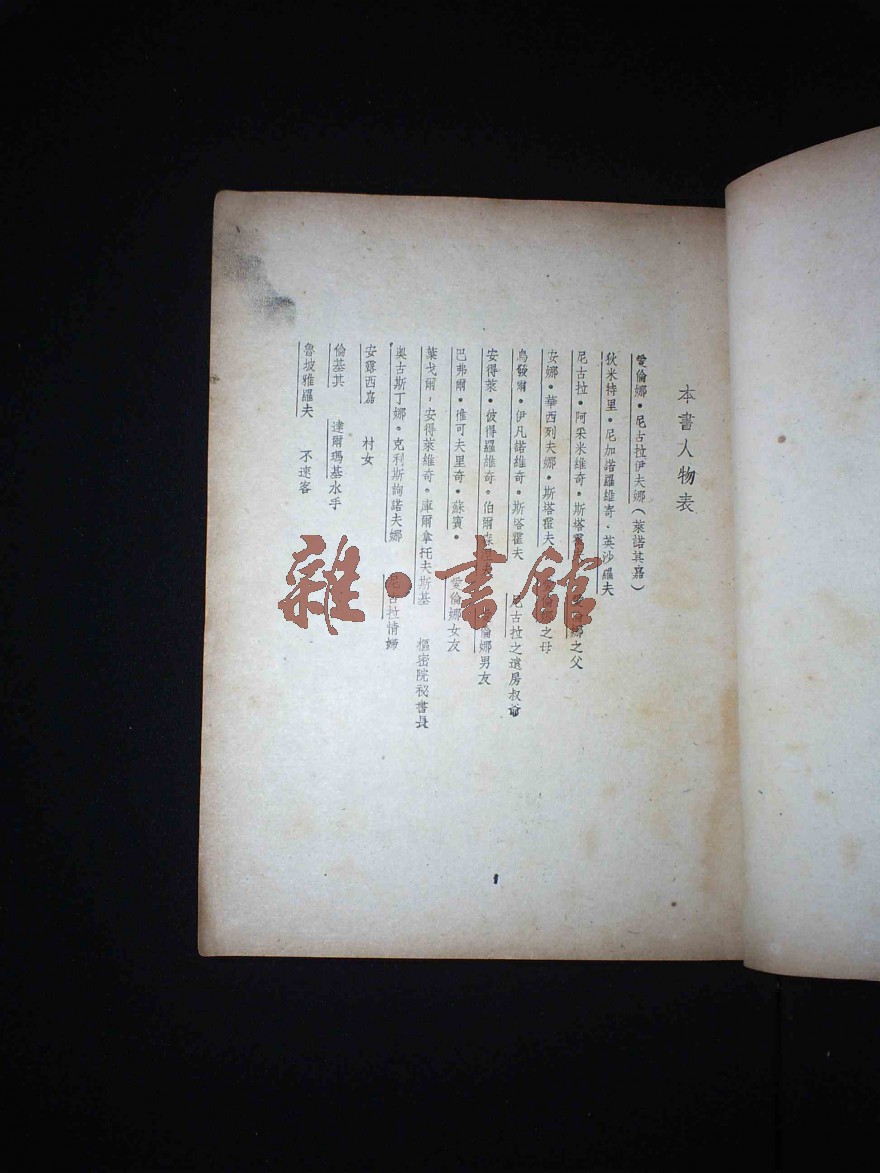 本書人物表
愛倫娜•尼古拉伊夫娜(萊諾其嘉)
狄米特里•尼加諾羅維奇•英沙羅夫
尼古拉•阿采米維奇•斯塔霍 愛倫娜之父
安娜•華西列夫娜•斯塔霍夫 倫 之母
烏發爾•伊凡諾維奇•斯塔霍夫 尼古拉之遠房叔爺
安得萊•彼得羅維奇•伯爾森 倫娜男友
巴弗爾•維可夫里奇•蘇賓• 愛倫娜女友
葉戈爾,安得萊維奇•庫爾拿托夫斯基 樞密院祕書長
奧古斯丁娜•克利斯詢諾夫娜 尼古拉情婦
安露西嘉 村女
倫基其 達爾瑪基水手
魯坡雅羅夫 不速客
1
雜•書館